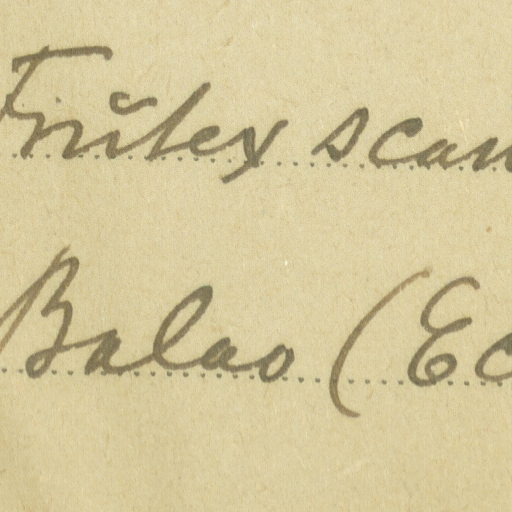 Frŭtex scan
Balao (Ec